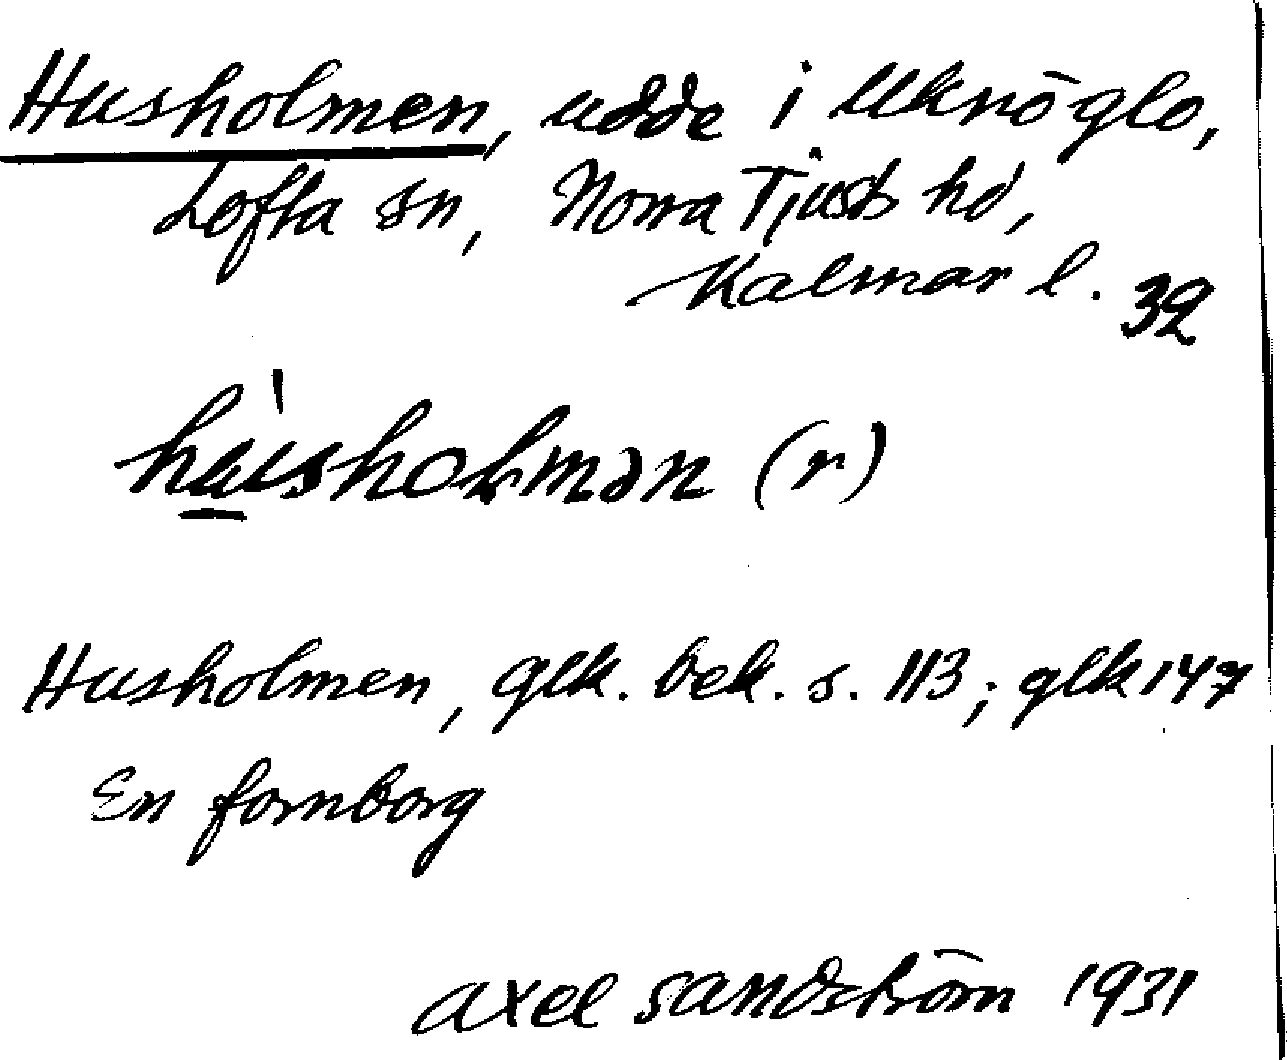 Husholmen, udde i Uknö glo,
Lofta sn, Norra Tjusts hd,
Kalmar l. 32
hùsholmən (r)
Husholmen, glk. bek. s. 113; glk 147
En fornborg
Axel Sandström 1931